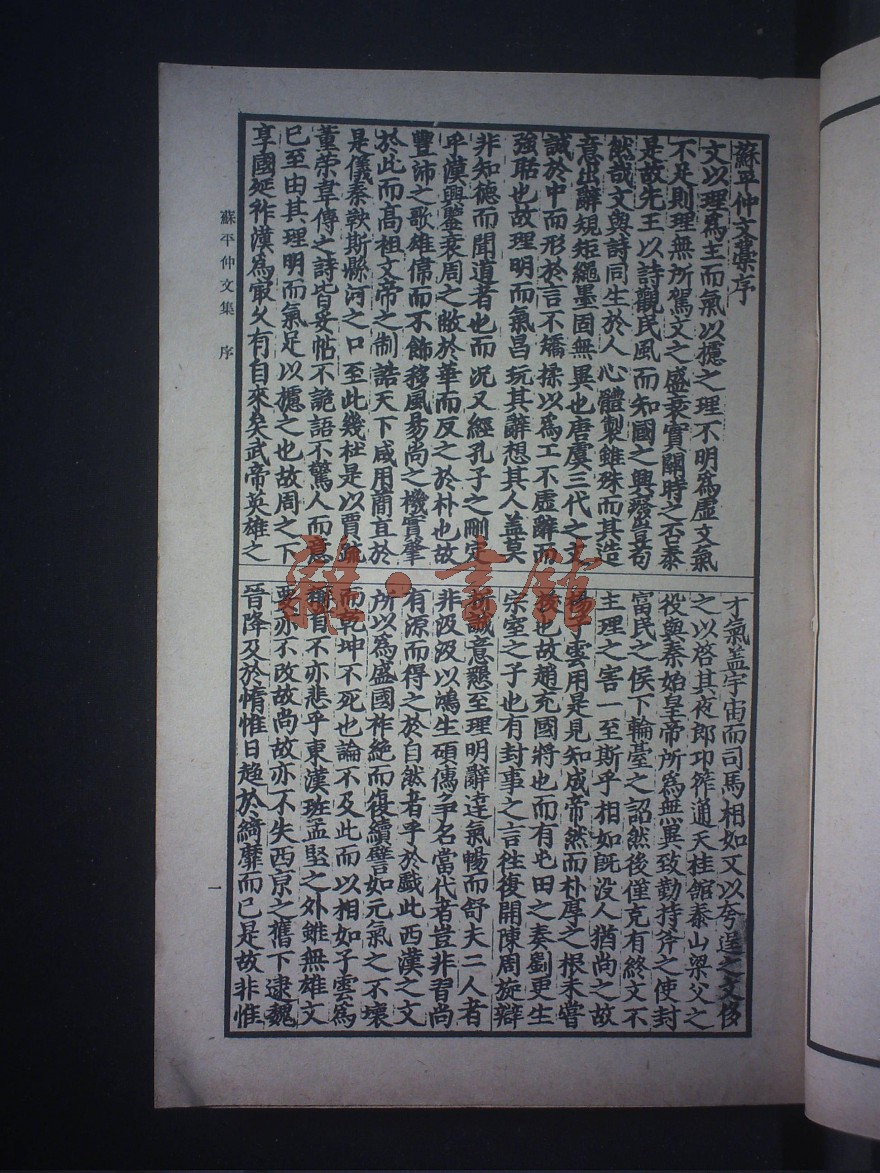 蘇平仲文集序
文以理爲主而氣以攄之理不明爲虛文氣
不足則理無所駕文之盛衰實關時之否泰
是故先王以詩觀民風而知國之興廢豈苟
然哉文與詩同生於人心體製雖殊而其造
意出辭規矩繩墨固無異也唐虞三代之文
誠於中而形於言不矯揉以爲工不虛辭而
強聒也故理明而氣昌玩其辭想其人蓋莫
非知德而聞道者也而况又經孔子之刪定
乎漢興鑒衰周之敝於華而反之於朴也故
豐沛之歌雄偉而不飾移風易尚之機實肇
於此而高祖文帝之制誥天下咸用簡直於
是儀秦鞅斯縣河之口至此幾杜是以賈疏
董策韋傅之詩皆妥帖不詭語不驚人而意
已至由其理明而氣足以攄之也故周之下
享國延祚漢爲最久有自來矣武帝英雄之
才氣蓋宇宙而司馬相如又以夸逞之文侈
之以啓其夜郎卭筰通天桂館泰山梁父之
役與秦始皇帝所爲無異致勤持斧之使封
富民之侯下輪臺之詔然後僅克有終文不
主理之害一至斯乎相如旣没人猶尚之故
揚子雲用是見知成帝然而朴厚之根未嘗
拔也故趙充國將也而有屯田之奏劉更生
宗室之子也有封事之言往復開陳周旋辯
析誠意懇至理明辭達氣暢而舒夫二人者
非汲汲以鴻生碩儒爭名當代者豈非習尚
有源而得之於自然者乎於戲此西漢之文
所以爲盛國祚絶而復續譬如元氣之不壞
而乾坤不死也論不及此而以相如子雲爲
稱首不亦悲乎東漢班孟堅之外雖無雄文
要亦不改故尚故亦不失西京之舊下逮魏
晉降及於惰惟日趨於綺靡而已是故非惟
蘇平仲文集 序
一
雜·書館